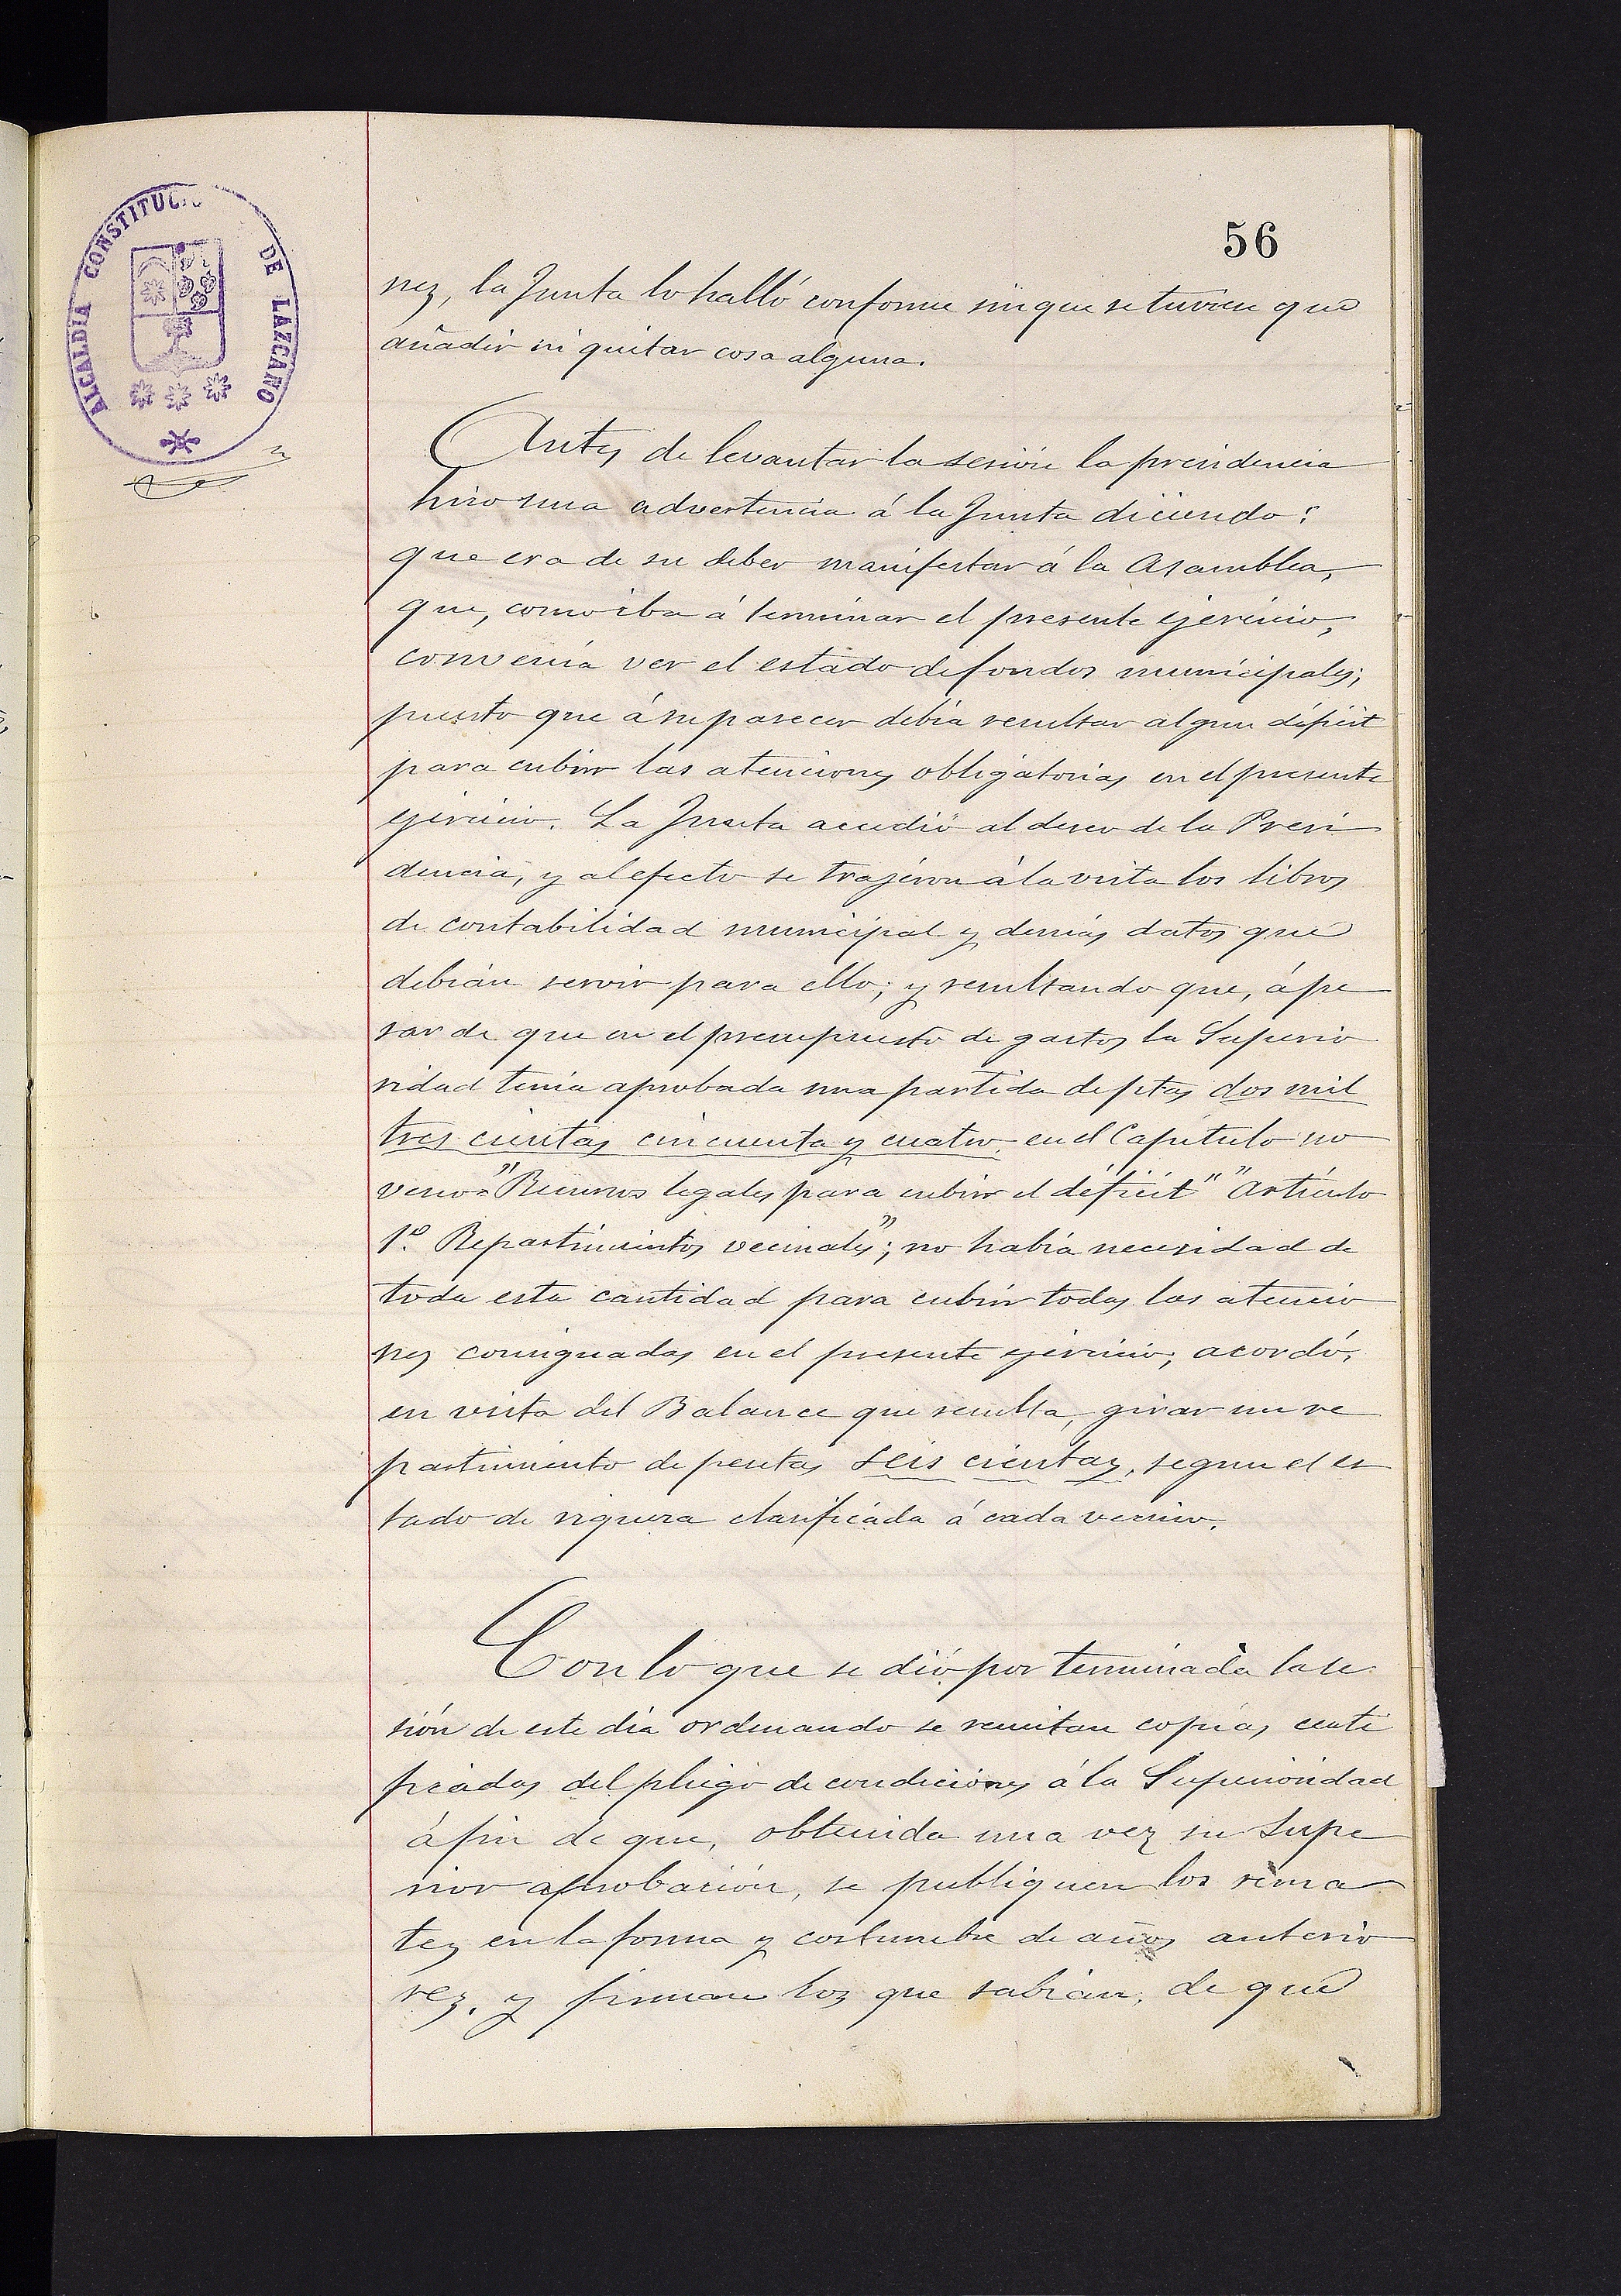 ALCALDIA CONSTITUCIO DE LAZCANO
56
nes, la Junta lo halló conforme sin que se tuviese que
añadir ni quitar cosa alguna.
Antes de levantar la sesión la presidencia
hizo una advertencia á la Junta diciendo:
que era de su deber manifestar á la Asamblea,
que, como iba á terminar el presente ejercicio,
convenía ver el estado de fondos municipales;
puesto que á su parecer debía resultar algun déficit
para cubrir las atenciones obligatorias en el presente
ejercicio. La Junta accedió al deseo de la Presi
dencia, y al efecto se trajeron á la vista los libros
de contabilidad municipal y demás datos que
debían servir para ello; y resultando que, á pe
sar de que en el presupuesto de gastos la Superio
ridad tenía aprobada una partida de ptas dos mil
tres cientas cincuenta y cuatro en el Capítulo no
veno "Recursos legales para cubrir el déficit" "Artículo
1º Repartimientos vecinales"; no había necesidad de
toda esta cantidad para cubrir todas las atencio
nes consignadas en el presente ejercicio; acordó,
en vista del Balance que resulta, girar un re
partimiento de pesetas seis cientas, segun el es
tado de riqueza clasificada á cada vecino.
Con lo que se dió por terminada la se
sión de este día ordenando se remitan copias certi
ficadas del pliego de condiciones á la Superioridad
á fin de que, obtenida una vez su supe
rior aprobación, se publiquen los rema
tes en la forma y costumbre de años anterio
res. y firman los que sabían, de que